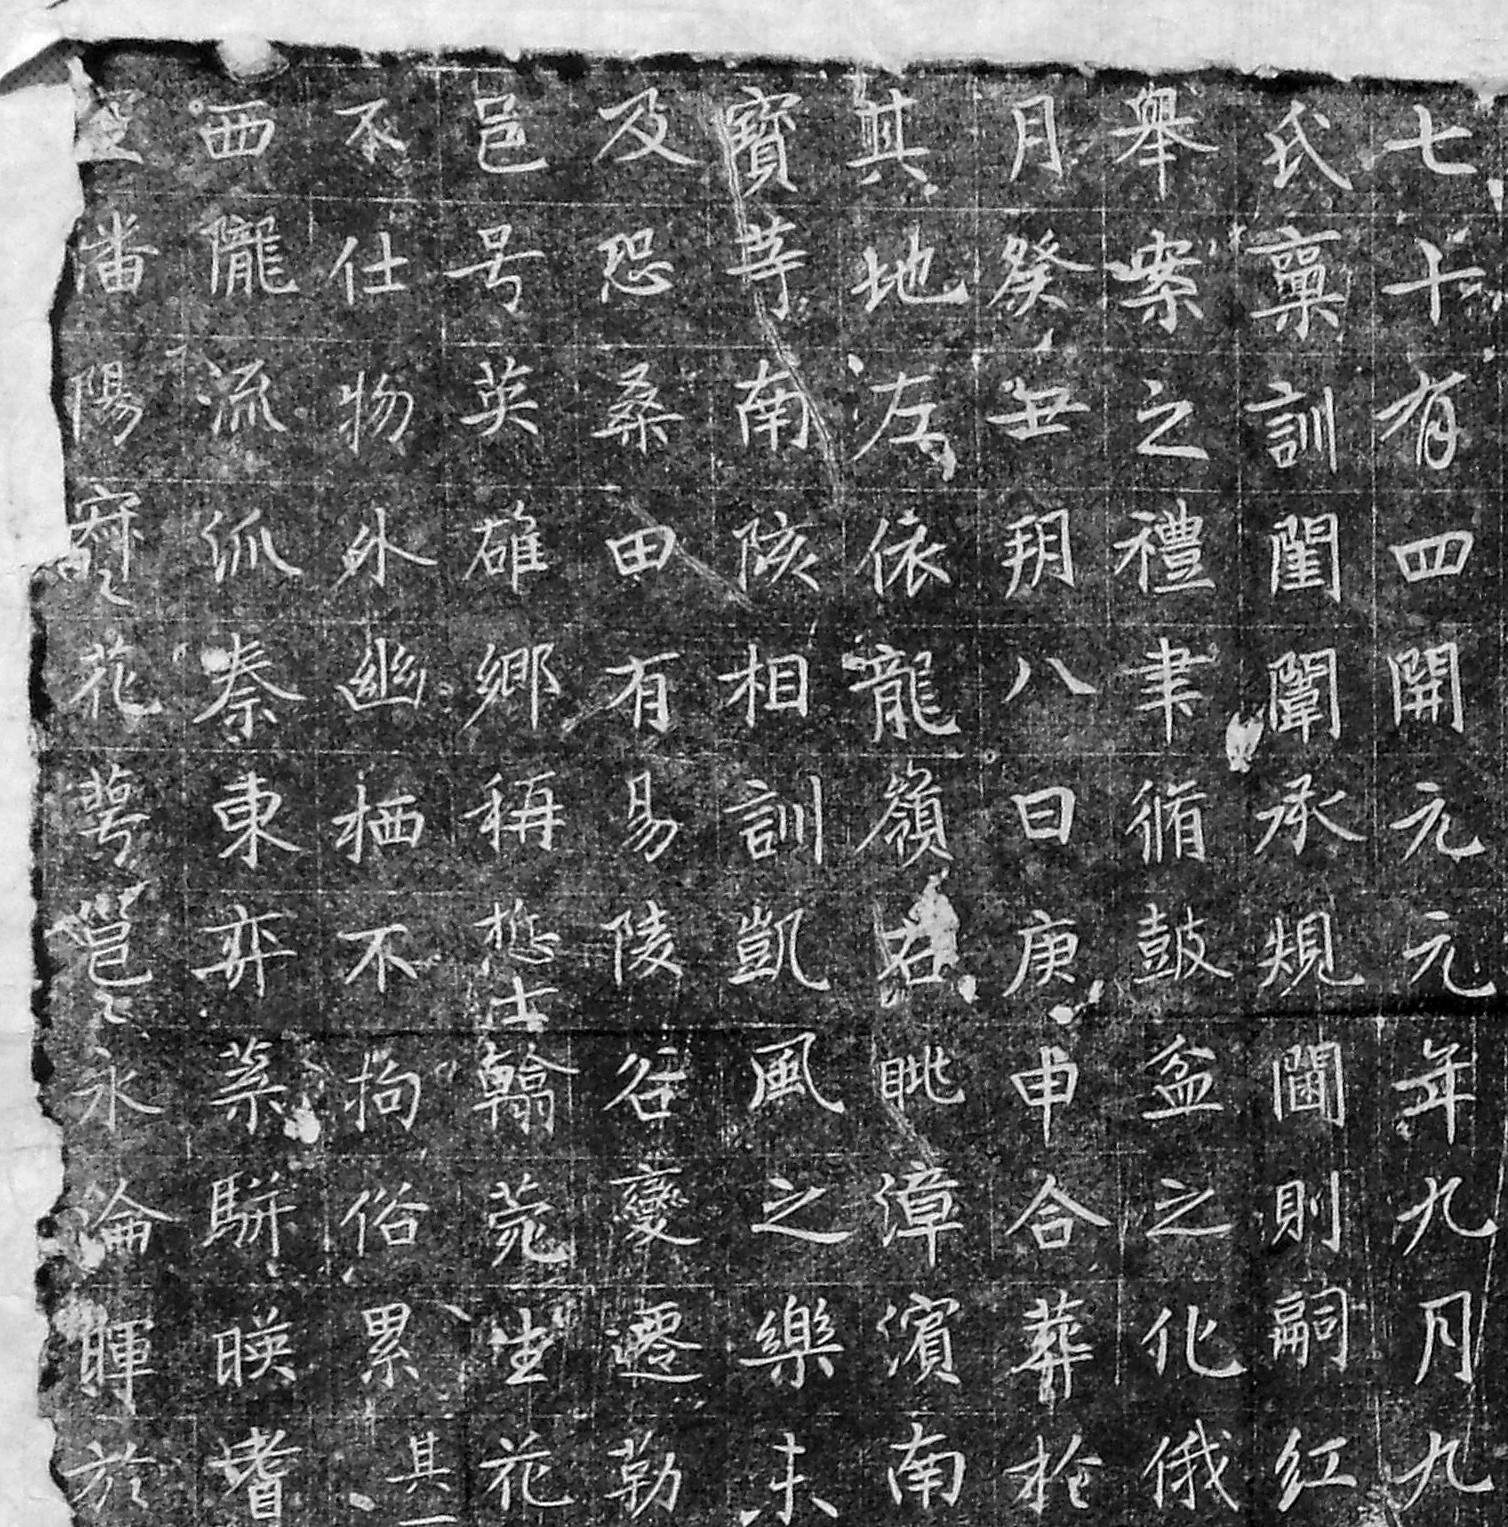 七十有四開元元年九月九
氏稟訓閨闈承規閫則嗣紅
舉案之禮聿脩鼓盆之化俄
月癸丑玥八日庚申合葬於
其地左依龍嶺右眺漳濱南
寶等南陔相訓凱風之樂未
及恐桑田有易陵谷變遷勒
邑号英雄鄉稱悊士翰菀生花
不仕物外幽栖不拘俗累其一
西隴流派秦東弈葉駢暎耆
潘陽花萼邕〻永淪暉於